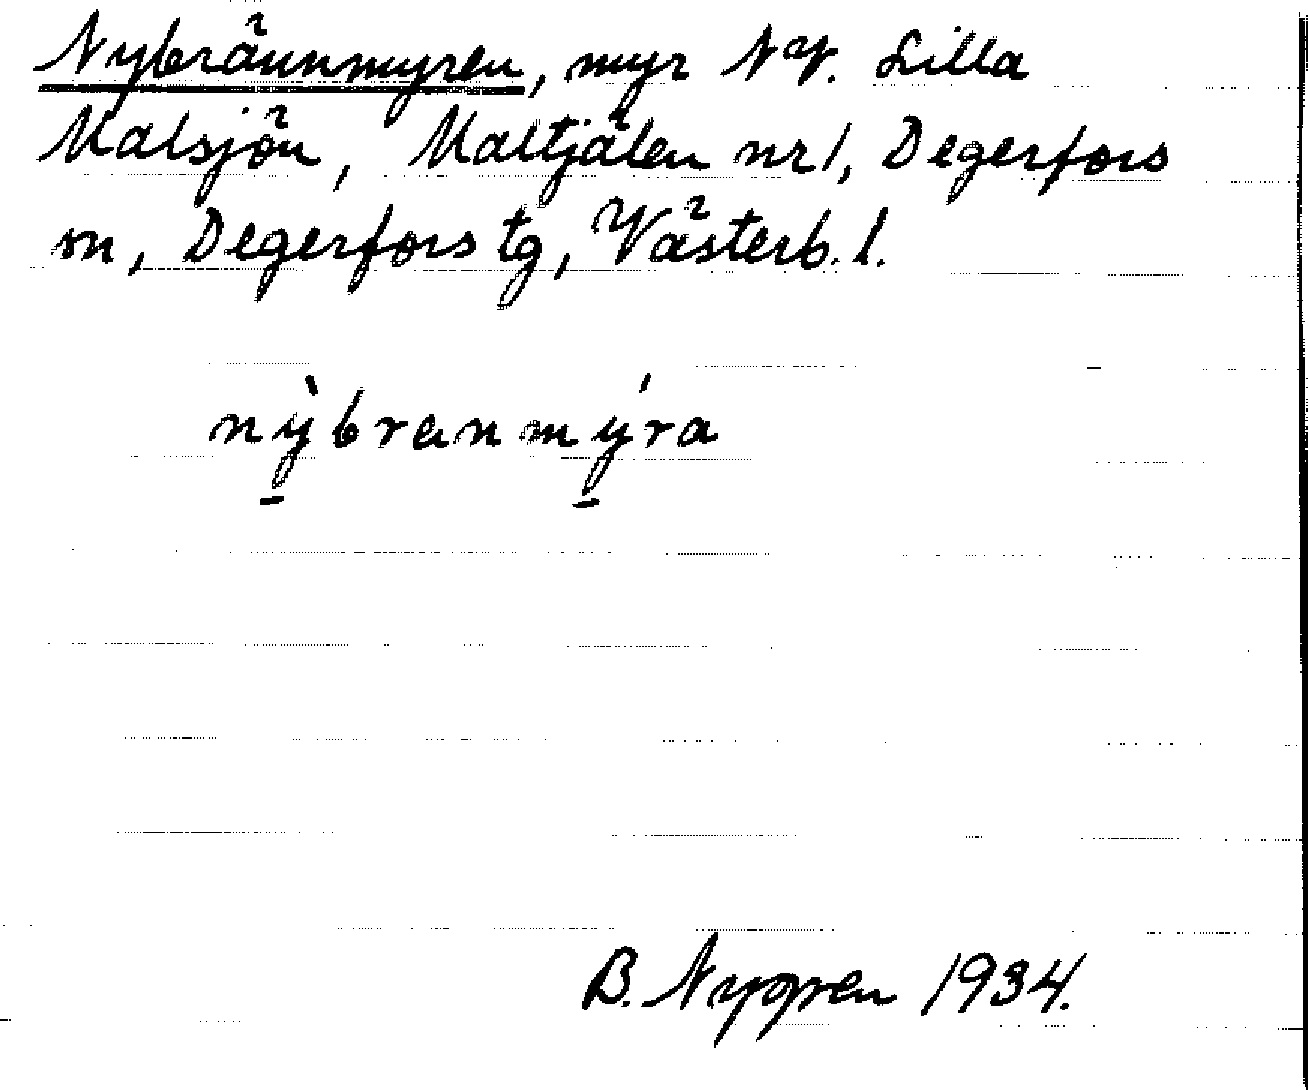 Nybrännmyren, myr NV. Lilla
Malsjön, Maltjälen nr 1, Degerfors
sn, Degerfors tg, Västerb. l.
nỳbranmýra
B. Nygren 1934.